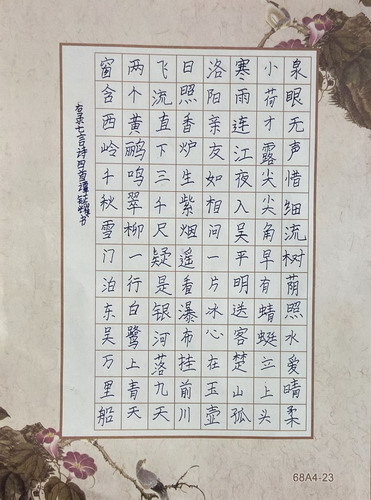 泉眼无声惜细流树荫照水爱晴柔
小荷才露尖尖角早有蜻蜓立上头
寒雨连江夜入吴平明送客楚山孤
洛阳亲友如相问一片冰心在玉壶
日照香炉生紫烟遥看瀑布挂前川
飞流直下三千尺疑是银河落九天
两个黄鹂鸣翠柳一行白鹭上青天
窗含西岭千秋雪门泊东吴万里船
右录七言诗四首谭书
68A4-23